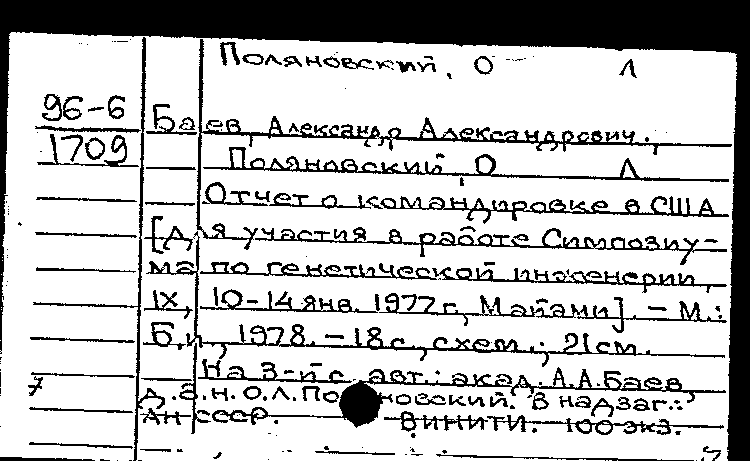 Поляновский, О Л
96-6
1709
Баев, Александр Александрович.,
Поляновский, О Л
Отчет о командировке в США
[для участия в работе Симпозиу-
ма по генетической инженерии,
IX, 10-14 янв. 1977 г., Майами]. - М.:
Б.и., 1978. - 18 с., схем.; 21 см.
На 3-й с. авт.: акад. А.А.Баев,
д.б.н. О.Л. Поляновский. В надзаг.:
АН СССР. ВИНИТИ. 100 экз.